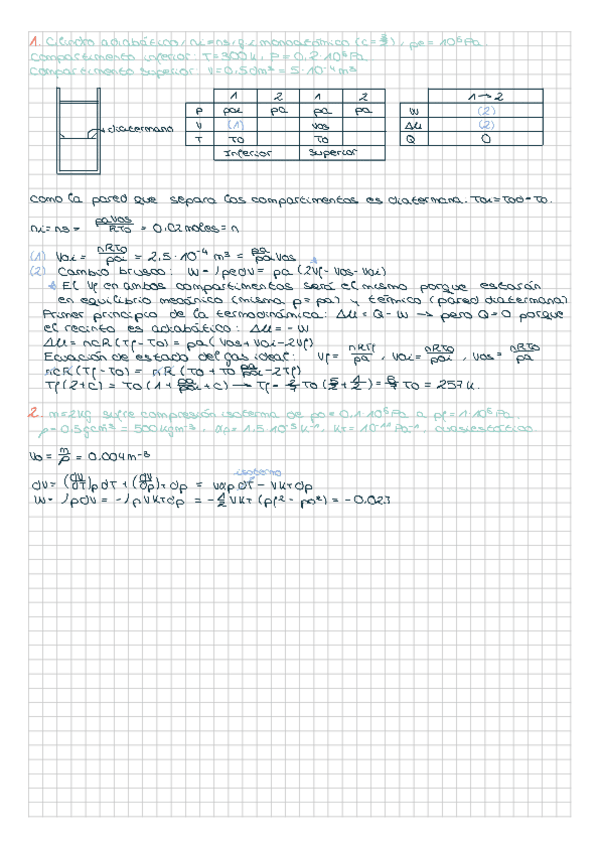 1. Cilindro adiabático, ni=ns, g.i monoatómico (c=3/2), pa = 10⁵Pa
Compartimento inferior T=300K, P=0.2·10⁶Pa.
Compartimento superior V=0.5dm³ = 5·10⁻⁴m³
diatermana
1 2 1 2
P poi pa pa pa
V (1) Vos
T To To
Inferior Superior
1→2
W (2)
Δu (2)
Q 0
Como la pared que separa los compartimentos es diatermana. Toi=Tos=To.
ni=ns = paVos/RTo = 0.02moles = n
(1) Voi = nRTo/poi = 2,5·10⁻⁴ m³ = pa/poi Vos
(2) Cambio brusco: W=∫pedV = pa (2Vf - Vos - Voi)
* El Vf en ambos compartimentos será el mismo porque estarán
en equilibrio mecánico (misma p=pa) y térmico (pared diatermana)
Primer principio de la termodinámica: Δu = Q - W → pero Q=0 porque
el recinto es adiabático: Δu = - W
Δu = ncR(Tf-To) = pa(Vos+Voi-2Vf)
Ecuación de estado del gas ideal: Vf = nRTf/pa, Voi = nRTo/poi, Vos = nRTo/pa
ncR(Tf-To) = nR (To + To pa/poi - 2Tf)
Tf(2+c) = To(1+pa/poi+c) → Tf = 2/7 To (5/2 + 1/2) = 6/7 To = 257K.
2. m=2kg sufre compresión isoterma de po=0.1·10⁶Pa a pf=1·10⁸Pa
ρ=0.5gcm⁻³ = 500kgm⁻³, αp=1.5·10⁻⁵K⁻¹, κT=10⁻¹²Pa⁻¹, cuasiestático
Vo = m/ρ = 0.004m⁻³
isotermo
dV = (dV/dT)p dT + (dV/dp)T dp = Vαp dT - VκT dp
W = ∫pdV = -∫pVκTdp = -1/2 VκT (pf² - po²) = -0.02J